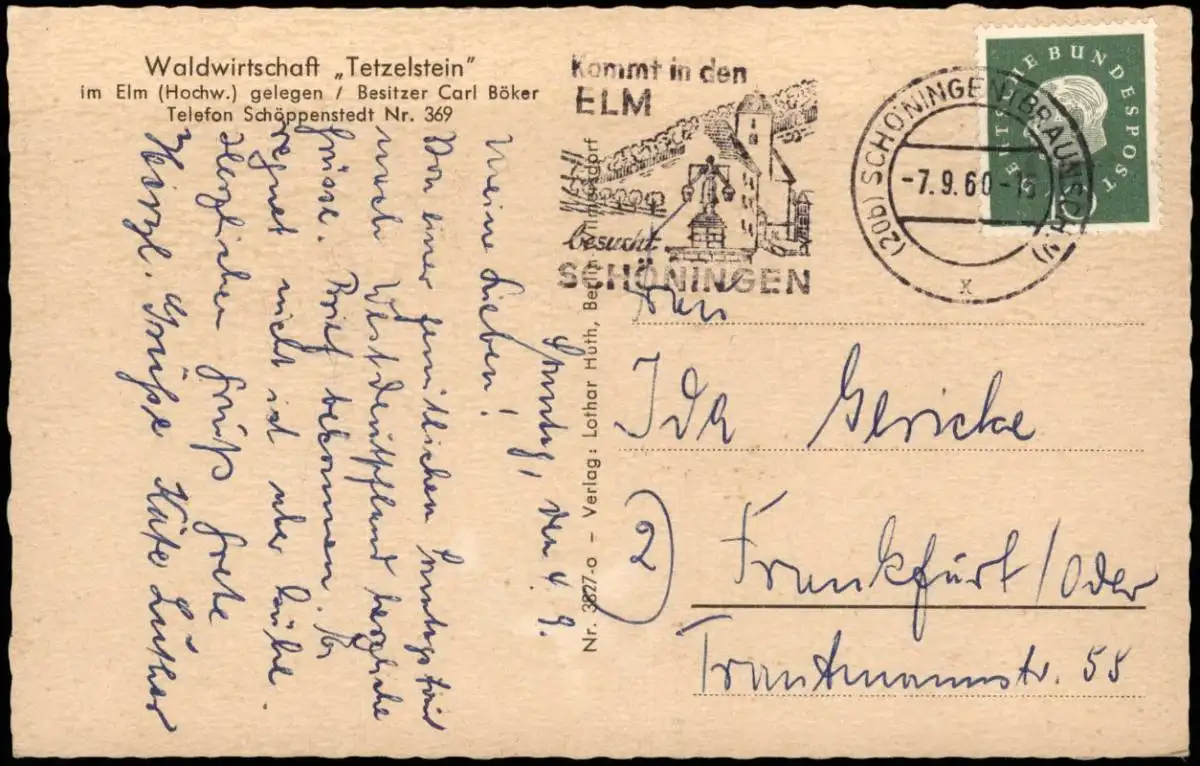 Waldwirtschaft „Tetzelstein"
im Elm (Hochw.) gelegen / Besitzer Carl Böker
Telefon Schöppenstedt Nr. 369
Kommt in den
ELM
besucht
SCHÖNINGEN
(20b) SCHÖNINGEN (BRAUNSCHW)
-7.9.60-15
x
DEUTSCHE BUNDESPOST
Sonntag, den 4. 9.
Meine Lieben!
Von einer gemütlichen
nach Westdeutschland herzliche
Grüsse. Brief bekommen. Es
regnet nicht ist aber kühl.
Herzlichen Gruß Grete
Herzl. Grüße Käte Luther
Nr. 3827-o – Verlag: Lothar Huth, Berlin-Wilmersdorf
Frau
Ida Gericke
2
Frankfurt/Oder
Trautmannstr. 55